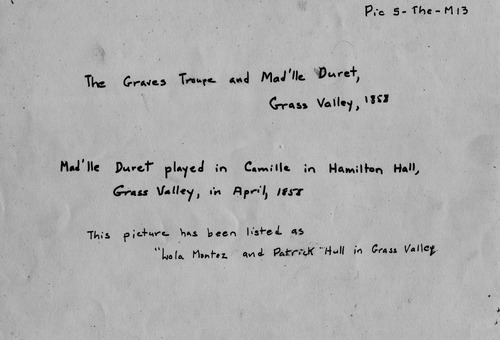 Pic 5-The-M13
The Graves Troupe and Mad'lle Duret,
Grass Valley, 1858
Mad'lle Duret played in Camille in Hamilton Hall,
Grass Valley, in April, 1858
This picture has been listed as
"Lola Montez and Patrick "Hull in Grass Valley